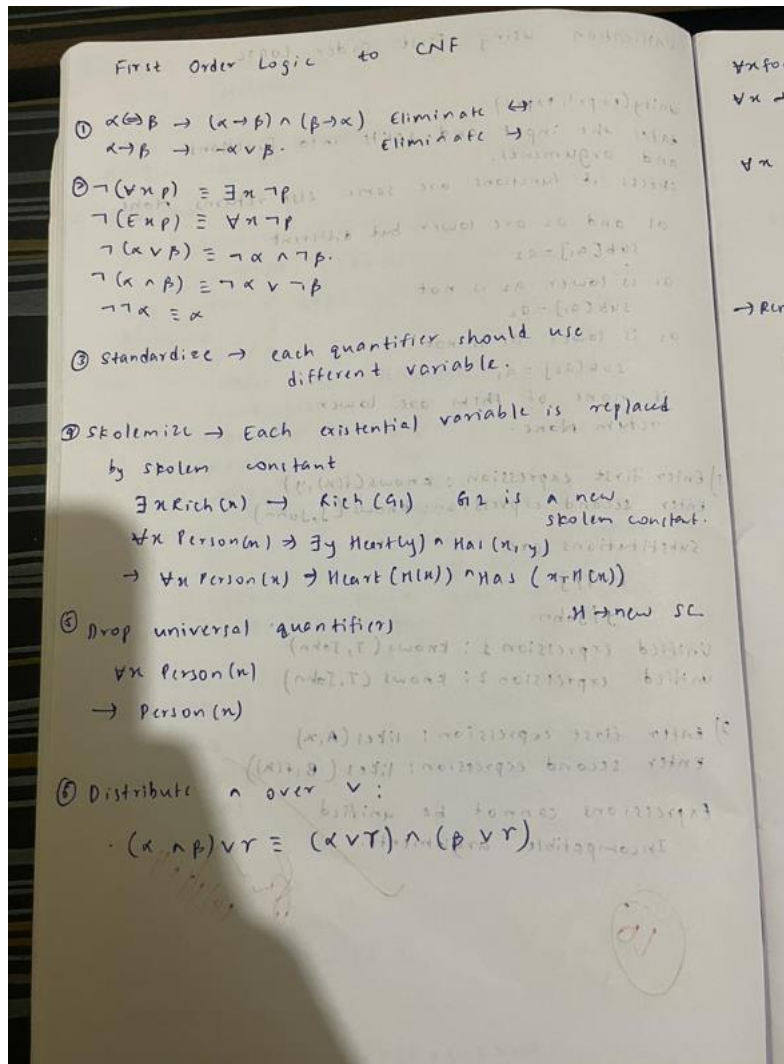 First Order Logic to CNF
① α⇔β → (α→β) ∧ (β→α) Eliminate ↔
α→β → ¬α∨β. Eliminate →
② ¬(∀x p) ≡ ∃x ¬p
¬(E x p) ≡ ∀x ¬p
¬(α ∨ β) ≡ ¬α ∧ ¬β.
¬(α ∧ β) ≡ ¬α ∨ ¬β
¬¬α ≡ α
③ Standardize → each quantifier should use
different variable.
④ Skolemize → Each existential variable is replaced
by skolem constant
∃x Rich(x) → Rich(G1) G2 is a new
skolem constant.
∀x Person(x) ⇒ ∃y Heart(y) ∧ Has(x,y)
→ ∀x Person(x) ⇒ Heart(H(x)) ∧ Has (x, H(x))
H → new SC
⑤ Drop universal quantifiers
∀x Person(x)
→ Person(x)
⑥ Distribute ∧ over ∨ :
(α ∧ β) ∨ γ ≡ (α ∨ γ) ∧ (β ∨ γ)
∀x
∀x